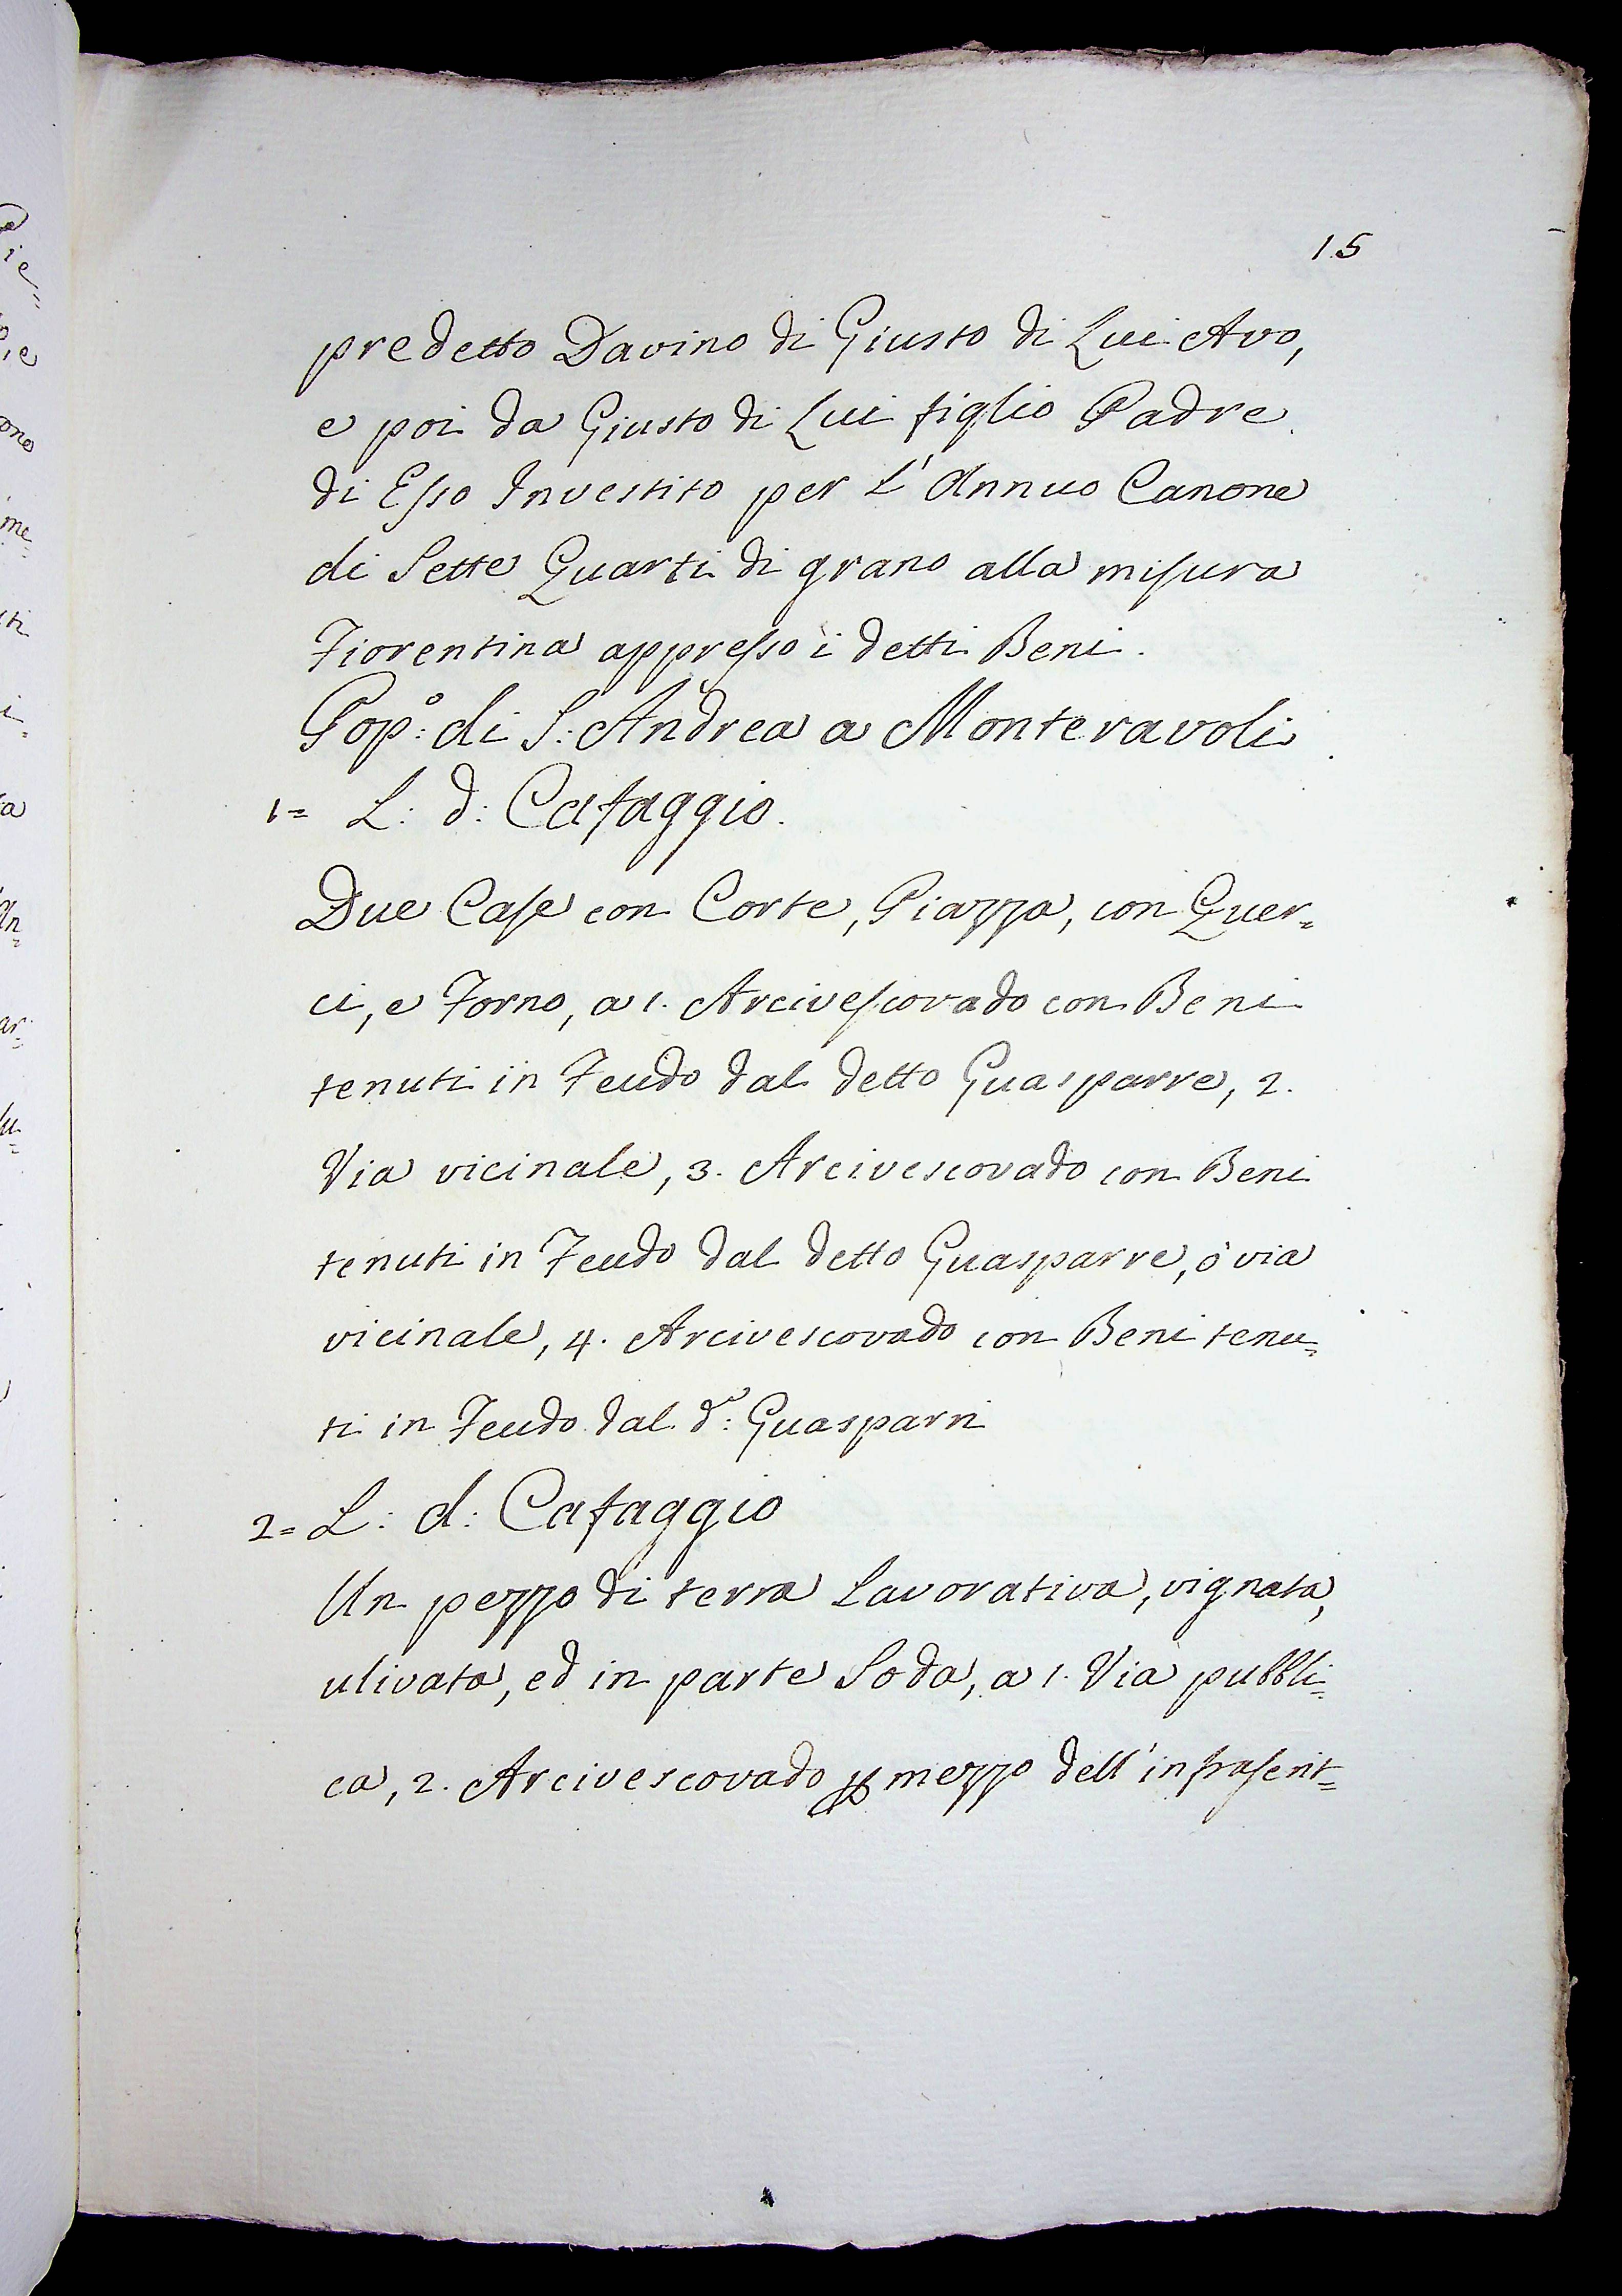 15
predetto Davino di Giusto di Lui Avo,
e poi da Giusto di Lui figlio Padre
di Esso Investito per L'Annuo Canone
di Sette Quarti di grano alla misura
Fiorentina appresso i detti Beni.
Pop.º: di S: Andrea a Monteravoli
1= L: d: Cafaggio.
Due Case con Corte, Piazza, con Quer=
ci, e Forno, a 1. Arcivescovado con Beni
tenuti in Feudo dal detto Guasparre, 2.
Via vicinale, 3. Arcivescovado con Beni
tenuti in Feudo dal detto Guasparre, ò via
vicinale, 4. Arcivescovado con Beni tenu=
ti in Feudo dal d.º: Guasparri
2= L: d: Cafaggio
Un pezzo di terra Lavorativa, vignata,
ulivata, ed in parte Soda, a 1. Via pubbli=
ca, 2. Arcivescovado p mezzo dell'infrascrit=